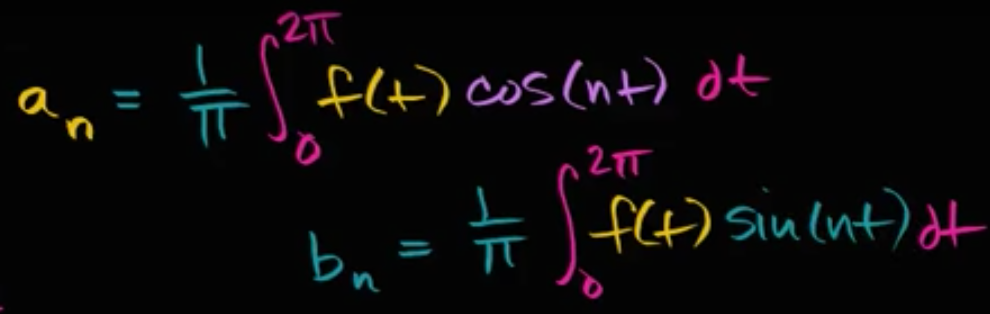 aₙ = 1/π ∫₀²π f(t) cos(nt) dt
bₙ = 1/π ∫₀²π f(t) sin(nt) dt